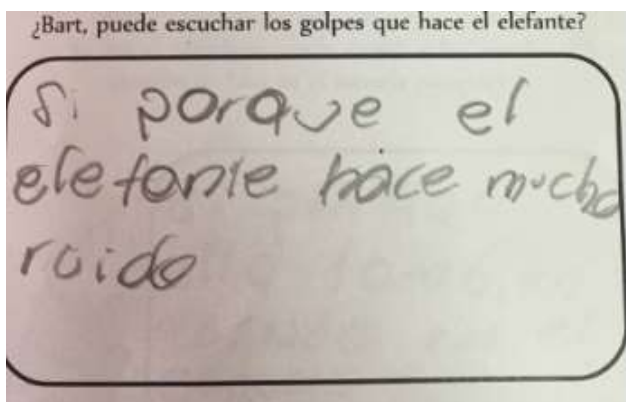 ¿Bart, puede escuchar los golpes que hace el elefante?
Si porque el
elefante hace mucho
ruido